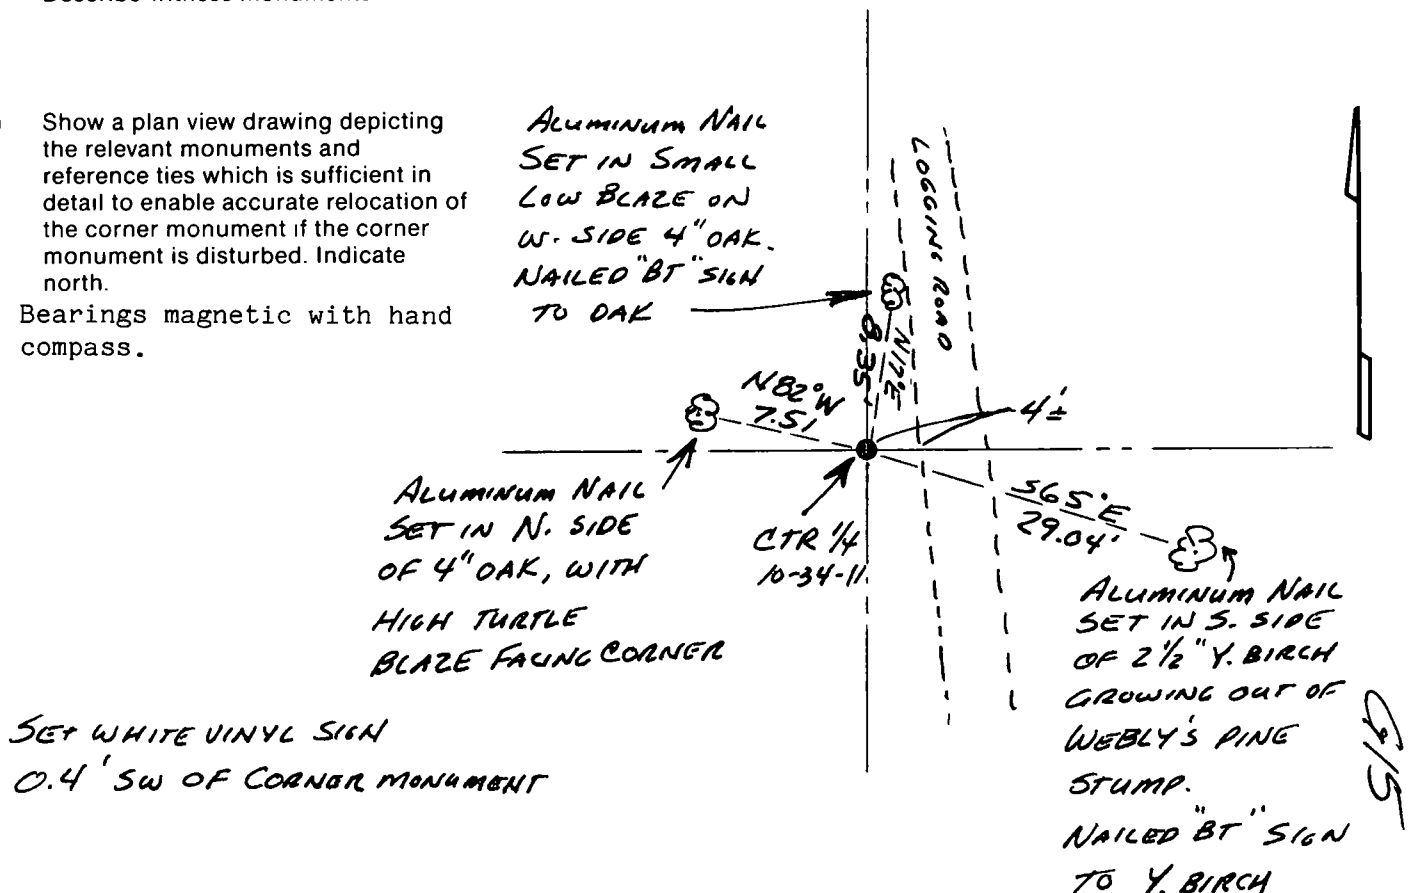 Show a plan view drawing depicting
the relevant monuments and
reference ties which is sufficient in
detail to enable accurate relocation of
the corner monument if the corner
monument is disturbed. Indicate
north.
Bearings magnetic with hand
compass.
ALUMINUM NAIL
SET IN SMALL
LOW BLAZE ON
W. SIDE 4" OAK.
NAILED "BT" SIGN
TO OAK
LOGGING ROAD
N17°E
8.35'
N82°W
7.51
4'±
S65°E
29.04'
CTR 1/4
10-34-11
ALUMINUM NAIL
SET IN N. SIDE
OF 4" OAK, WITH
HIGH TURTLE
BLAZE FACING CORNER
ALUMINUM NAIL
SET IN S. SIDE
OF 2 1/2" Y. BIRCH
GROWING OUT OF
WEBLY'S PINE
STUMP.
NAILED "BT" SIGN
TO Y. BIRCH
SET WHITE VINYL SIGN
0.4' SW OF CORNER MONUMENT